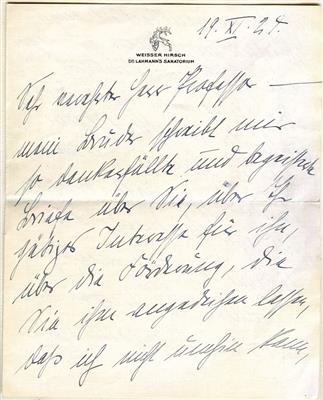 19. XI. 24.
WEISSER HIRSCH
DR. LAHMANN'S SANATORIUM
Sehr verehrter Herr Professor —
mein Bruder schreibt mir
so dankerfüllte und begeisterte
Briefe über Sie, über Ihr
gütiges Interesse für ihn,
über die Förderung, die
Sie ihm angedeihen lassen,
dass ich nicht umhin kann,